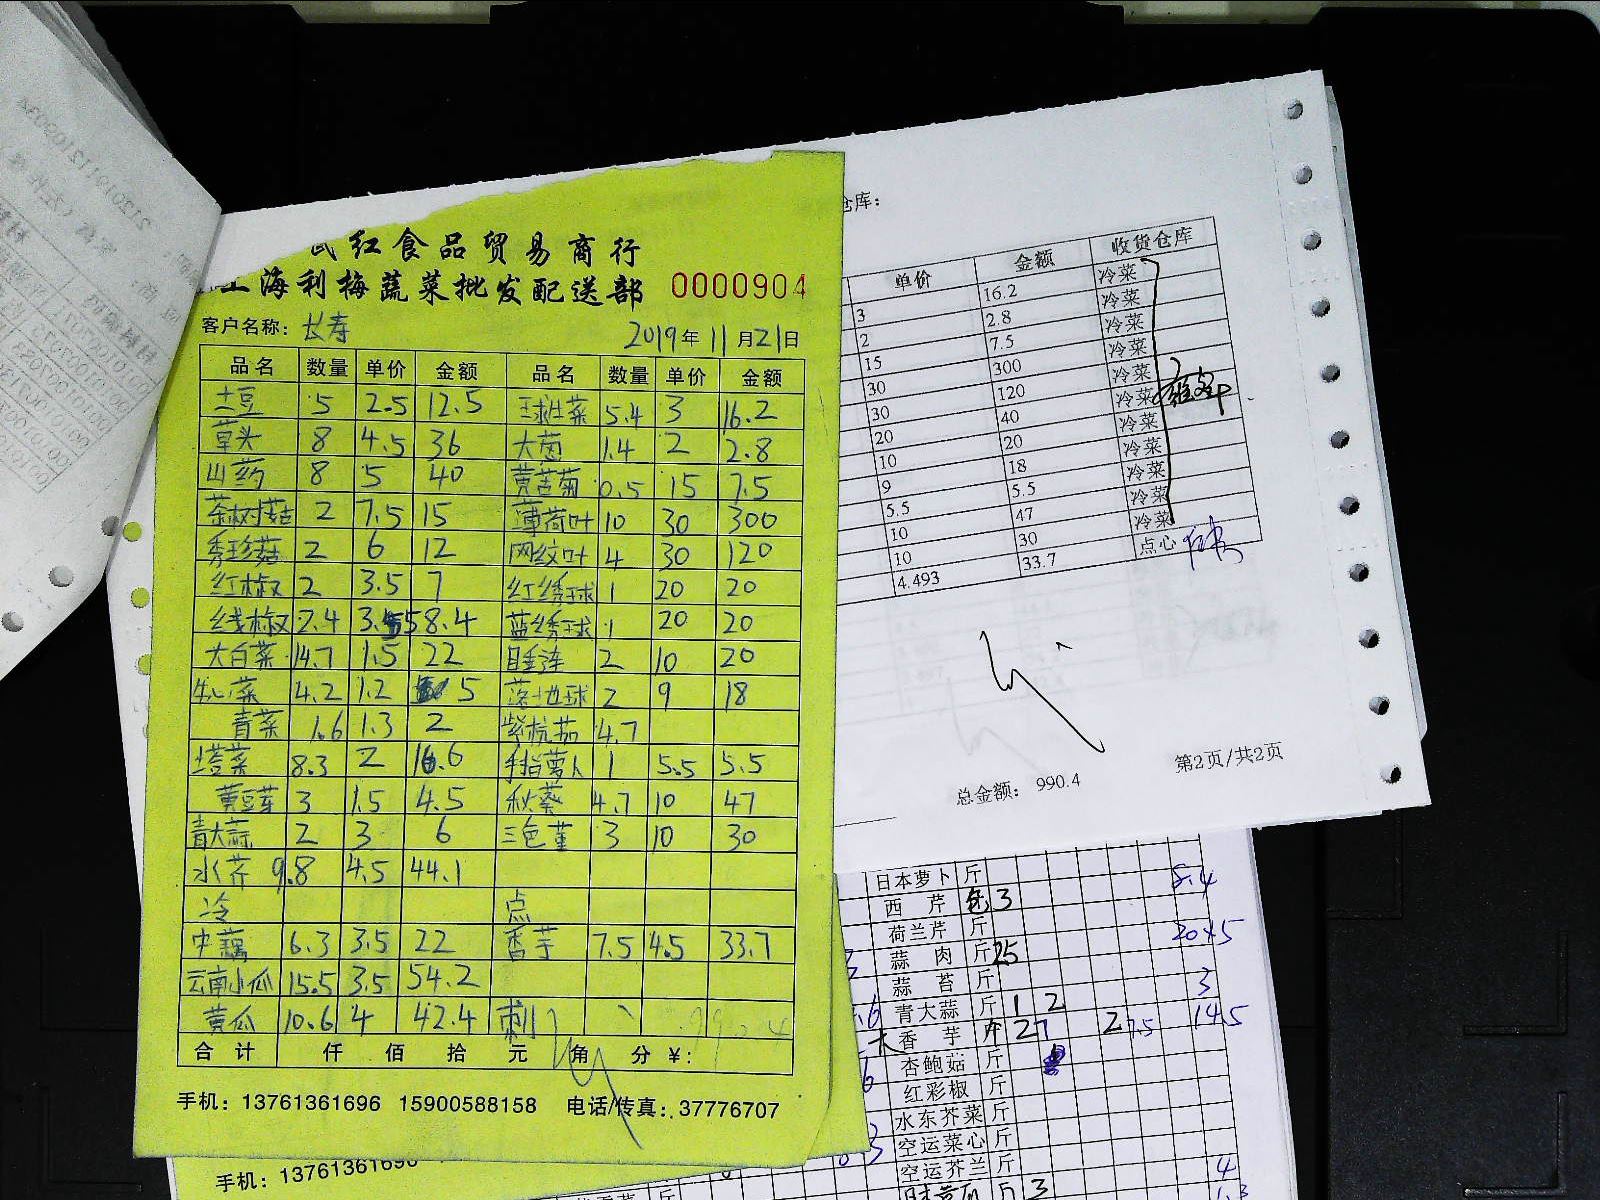 武红食品贸易商行
上海利梅蔬菜批发配送部 0000904
客户名称: 长寿 2019年11月21日
品名 数量 单价 金额 品名 数量 单价 金额
土豆 5 2.5 12.5 球生菜 5.4 3 16.2
草头 8 4.5 36 大葱 1.4 2 2.8
山药 8 5 40 黄苦菊 0.5 15 7.5
茶树菇 2 7.5 15 薄荷叶 10 30 300
秀珍菇 2 6 12 网纹叶 4 30 120
红椒 2 3.5 7 红绣球 1 20 20
线椒 2.4 3.5 8.4 蓝绣球 1 20 20
大白菜 14.7 1.5 22 睡连 2 10 20
4.2 1.2 5 落地球 2 9 18
青菜 1.6 1.3 2 紫杭茄 4.7
塔菜 8.3 2 16.6 手指萝卜 1 5.5 5.5
黄豆芽 3 1.5 4.5 秋葵 4.7 10 47
青大蒜 2 3 6 三色堇 3 10 30
水芹 9.8 4.5 44.1
冷 点
中藕 6.3 3.5 22 香芋 7.5 4.5 33.7
云南小瓜 15.5 3.5 54.2
黄瓜 10.6 4 42.4 刺
合计 仟 佰 拾 元 角 分 ¥:
手机: 13761361696 15900588158 电话/传真: 37776707
手机: 13761361696
仓库:
单价 金额 收货仓库
3 16.2 冷菜
2 2.8 冷菜
15 7.5 冷菜
30 300 冷菜
30 120 冷菜
20 40 冷菜
10 20 冷菜
9 18 冷菜
5.5 5.5 冷菜
10 47 冷菜
10 30 冷菜
4.493 33.7 点心
总金额: 990.4 第2页/共2页
日本萝卜 斤 5.4
西芹 3
荷兰芹 斤 20×5
蒜肉 斤 25
蒜苔 斤 3
青大蒜 斤 1 2
香芋 斤 27 27.5 14.5
杏鲍菇 斤
红彩椒 斤
水东芥菜 斤
空运菜心 斤
空运芥兰 斤 4
斤 3